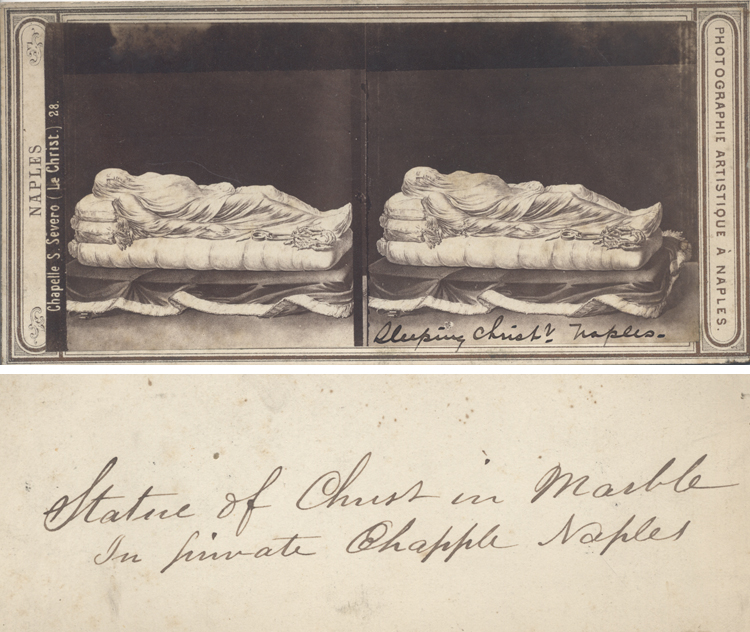 NAPLES
Chapelle S. Severo ( Le Christ.) 28.
PHOTOGRAPHIE ARTISTIQUE À NAPLES.
Sleeping Christ. Naples.
Statue of Christ in Marble
In private Chapple Naples